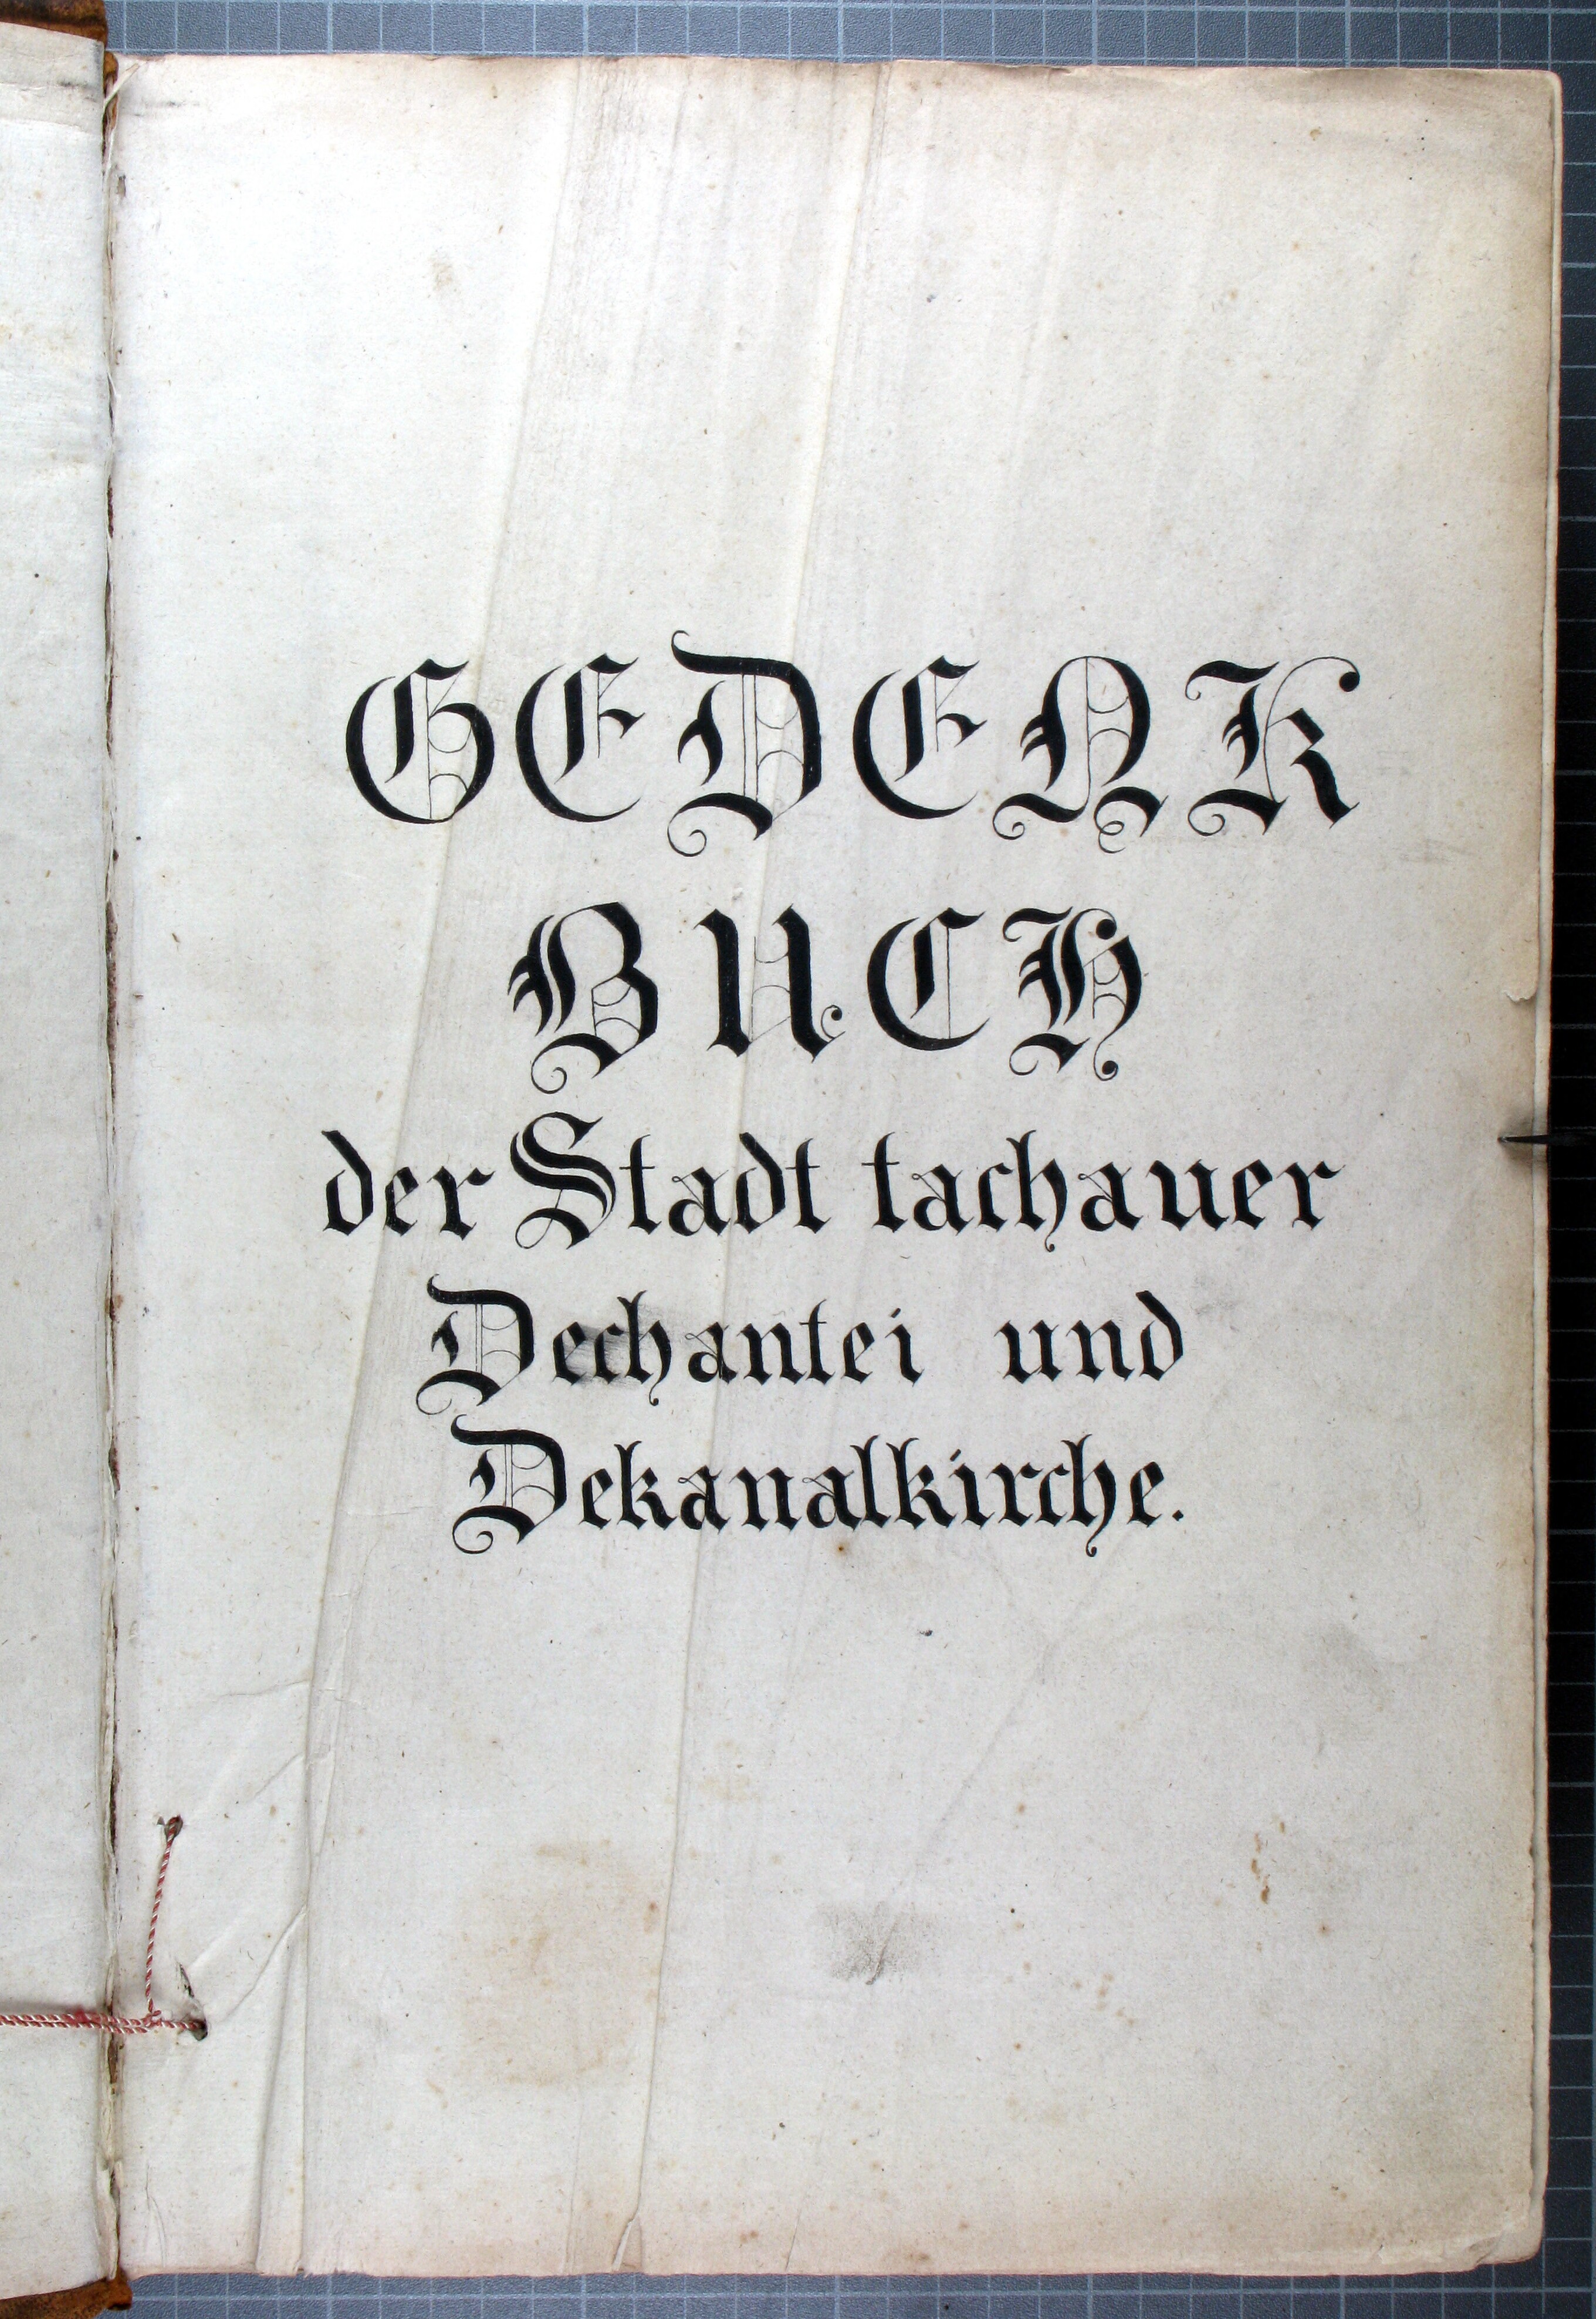 GEDENK
BUCH
der Stadt tachauer
Dechantei und
Dekanalkirche.